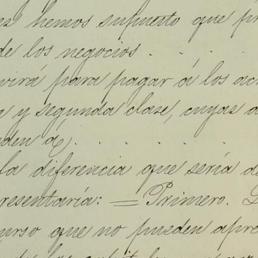 es hemos supuesto que pr
de los negocios. . . .
vira para pagar á los ac
a y segunda clase, cuyas a
eden á). . . . .
la diferencia que sería de
presentaría: = Primero. L
urso que no pueden apre